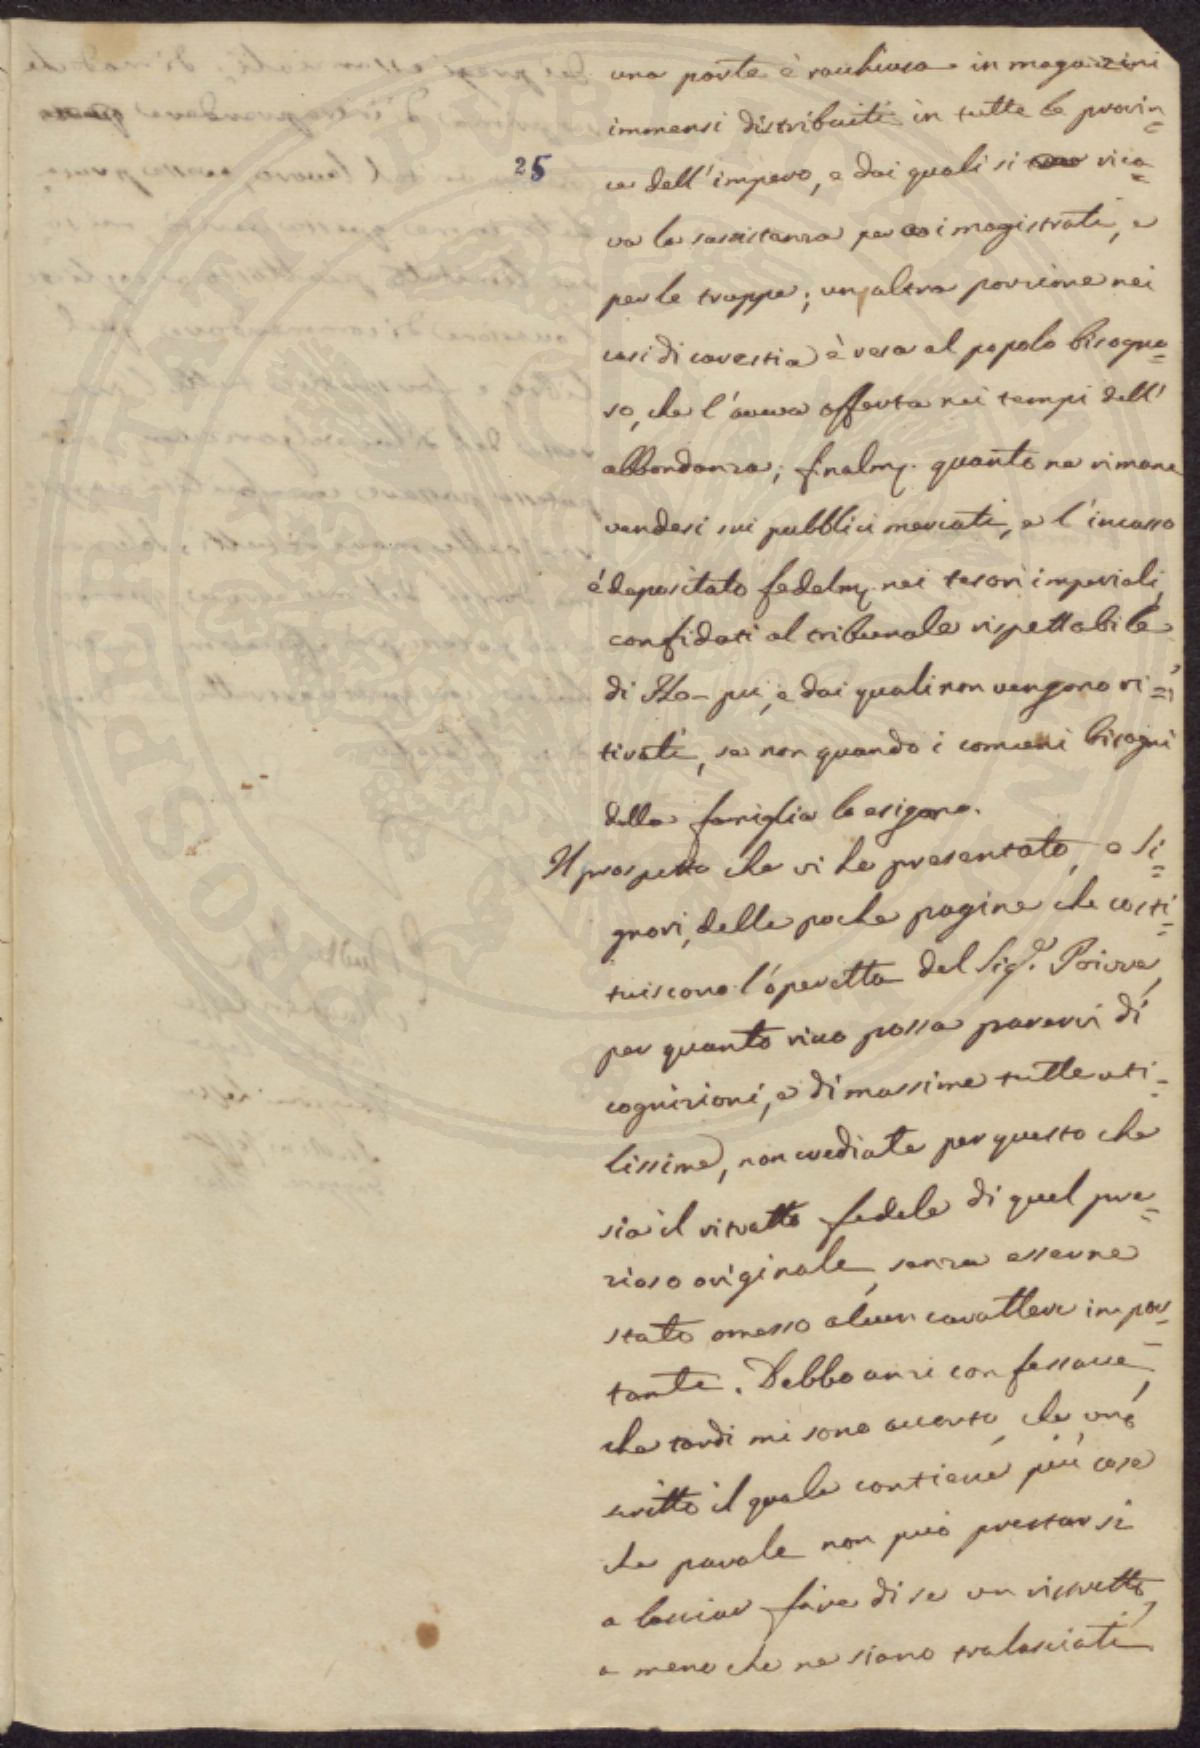 25
una parte è racchiusa in magazzini
immensi distribuiti in tutte le provin=
ce dell'impero, e dai quali si rica=
va la sussistanza per i magistrati, e
per le truppe; un'altra porzione nei
casi di carestia è resa al popolo bisogno=
so, che l'aveva offerta nei tempi dell'
abbondanza; finalm. quanto ne rimane
vendesi sui pubblici mercati, e l'incasso
è depositato fedelm. nei tesori imperiali,
confidati al tribunale rispettabile
di Ho-pu, e dai quali non vengono ri=
tirati, se non quando i comuni bisogni
della famiglia lo esigono.
Il prospetto che vi ho presentato, o Si=
gnori, delle poche pagine che costi=
tuiscono l'operetta del Sig.r Poivre,
per quanto ricco possa parervi di
cognizioni, e di massime tutte uti=
lissime, non crediate per questo che
sia il ritratto fedele di quel pre=
zioso originale, senza esserne
stato omesso alcun carattere impor=
tante. Debbo anzi confessare,
che tardi mi sono accorto, che uno
scritto il quale contiene più cose
che parole non può prestarsi
a lasciar fare di se un ristretto,
a meno che ne siano tralasciati